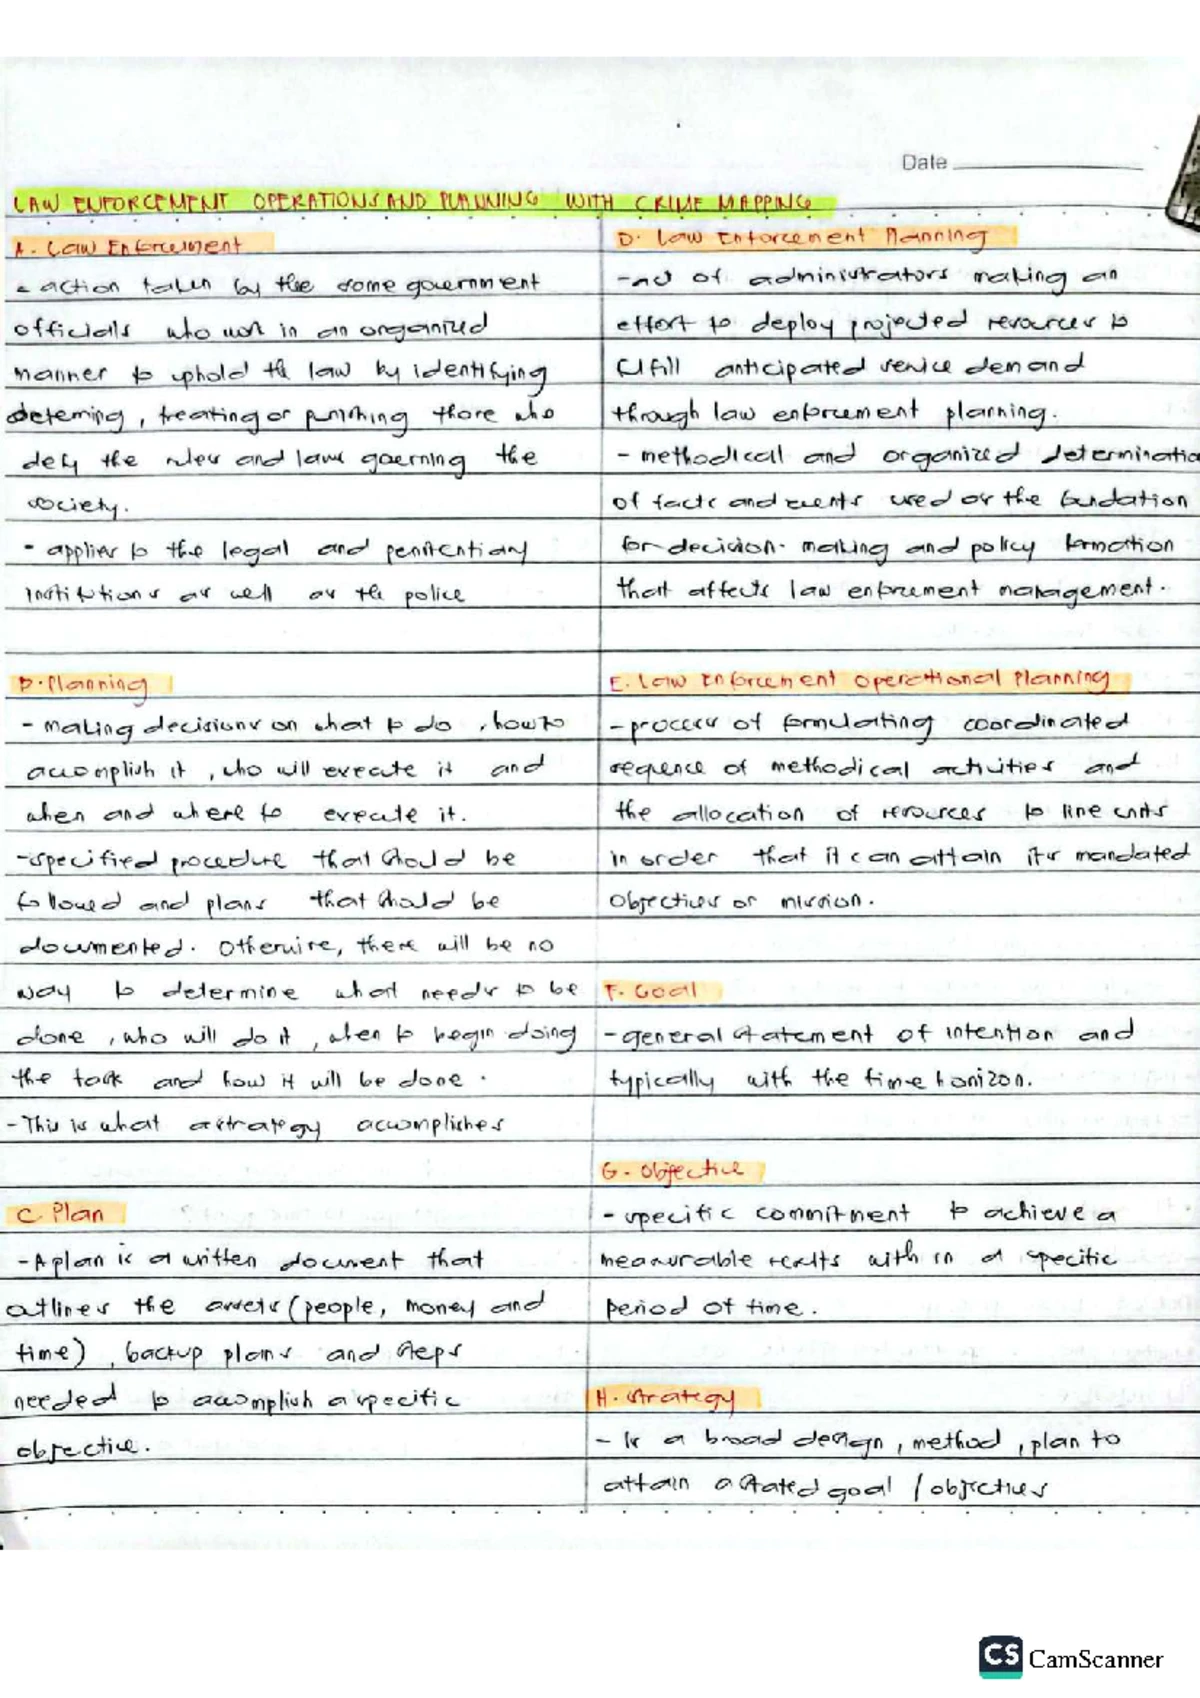 Date
LAW ENFORCEMENT OPERATIONS AND PLANNING WITH CRIME MAPPING
A. Law Enforcement
- action taken by the some government
officials who work in an organized
manner to uphold the law by identifying
deterring, treating or punishing those who
defy the rules and laws governing the
society.
- applies to the legal and penitentiary
institutions as well as the police
B. Planning
- making decisions on what to do, how to
accomplish it, who will execute it and
when and where to execute it.
- specified procedure that should be
followed and plans that should be
documented. Otherwise, there will be no
way to determine what needs to be
done, who will do it, when to begin doing
the task and how it will be done.
- This is what a strategy accomplishes
C. Plan
- A plan is a written document that
outlines the assets (people, money and
time), backup plans and steps
needed to accomplish a specific
objective.
D. Law Enforcement Planning
- act of administrators making an
effort to deploy projected resources to
fulfill anticipated service demand
through law enforcement planning.
- methodical and organized determinatio
of facts and events used as the foundation
for decision-making and policy formation
that affects law enforcement management.
E. Law Enforcement Operational Planning
- process of formulating coordinated
sequence of methodical activities and
the allocation of resources to line units
in order that it can attain its mandated
objectives or mission.
F. Goal
- general statement of intention and
typically with the time horizon.
G. Objective
- specific commitment to achieve a
measurable results with in a specific
period of time.
H. Strategy
- Is a broad design, method, plan to
attain a stated goal / objectives
CS CamScanner